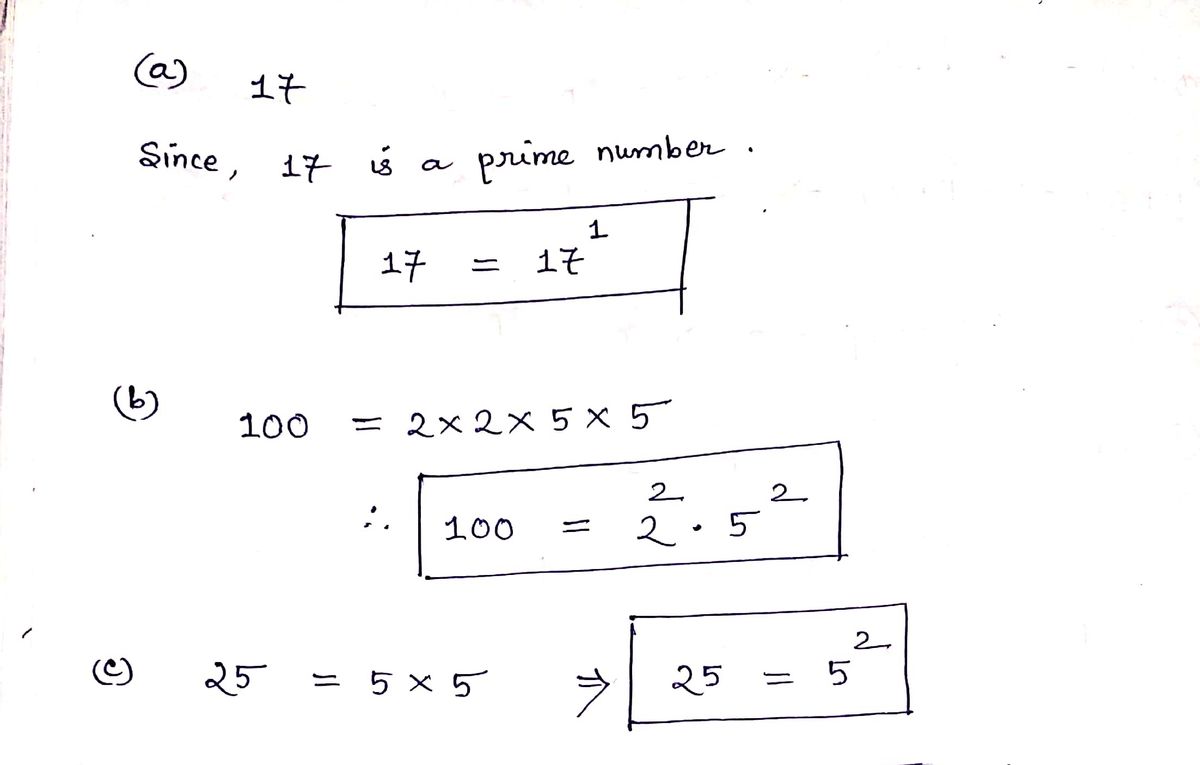 (a) 17
Since, 17 is a prime number.
17 = 17¹
(b) 100 = 2×2×5×5
∴ 100 = 2²·5²
(c) 25 = 5×5 ⇒ 25 = 5²